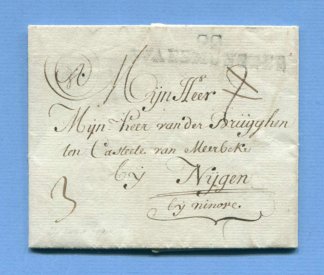 Mijn Heer
Mijn heer van der Brugghen
ten Casteele van Meerbeke
bÿ Nijgen
bÿ ninove.
3